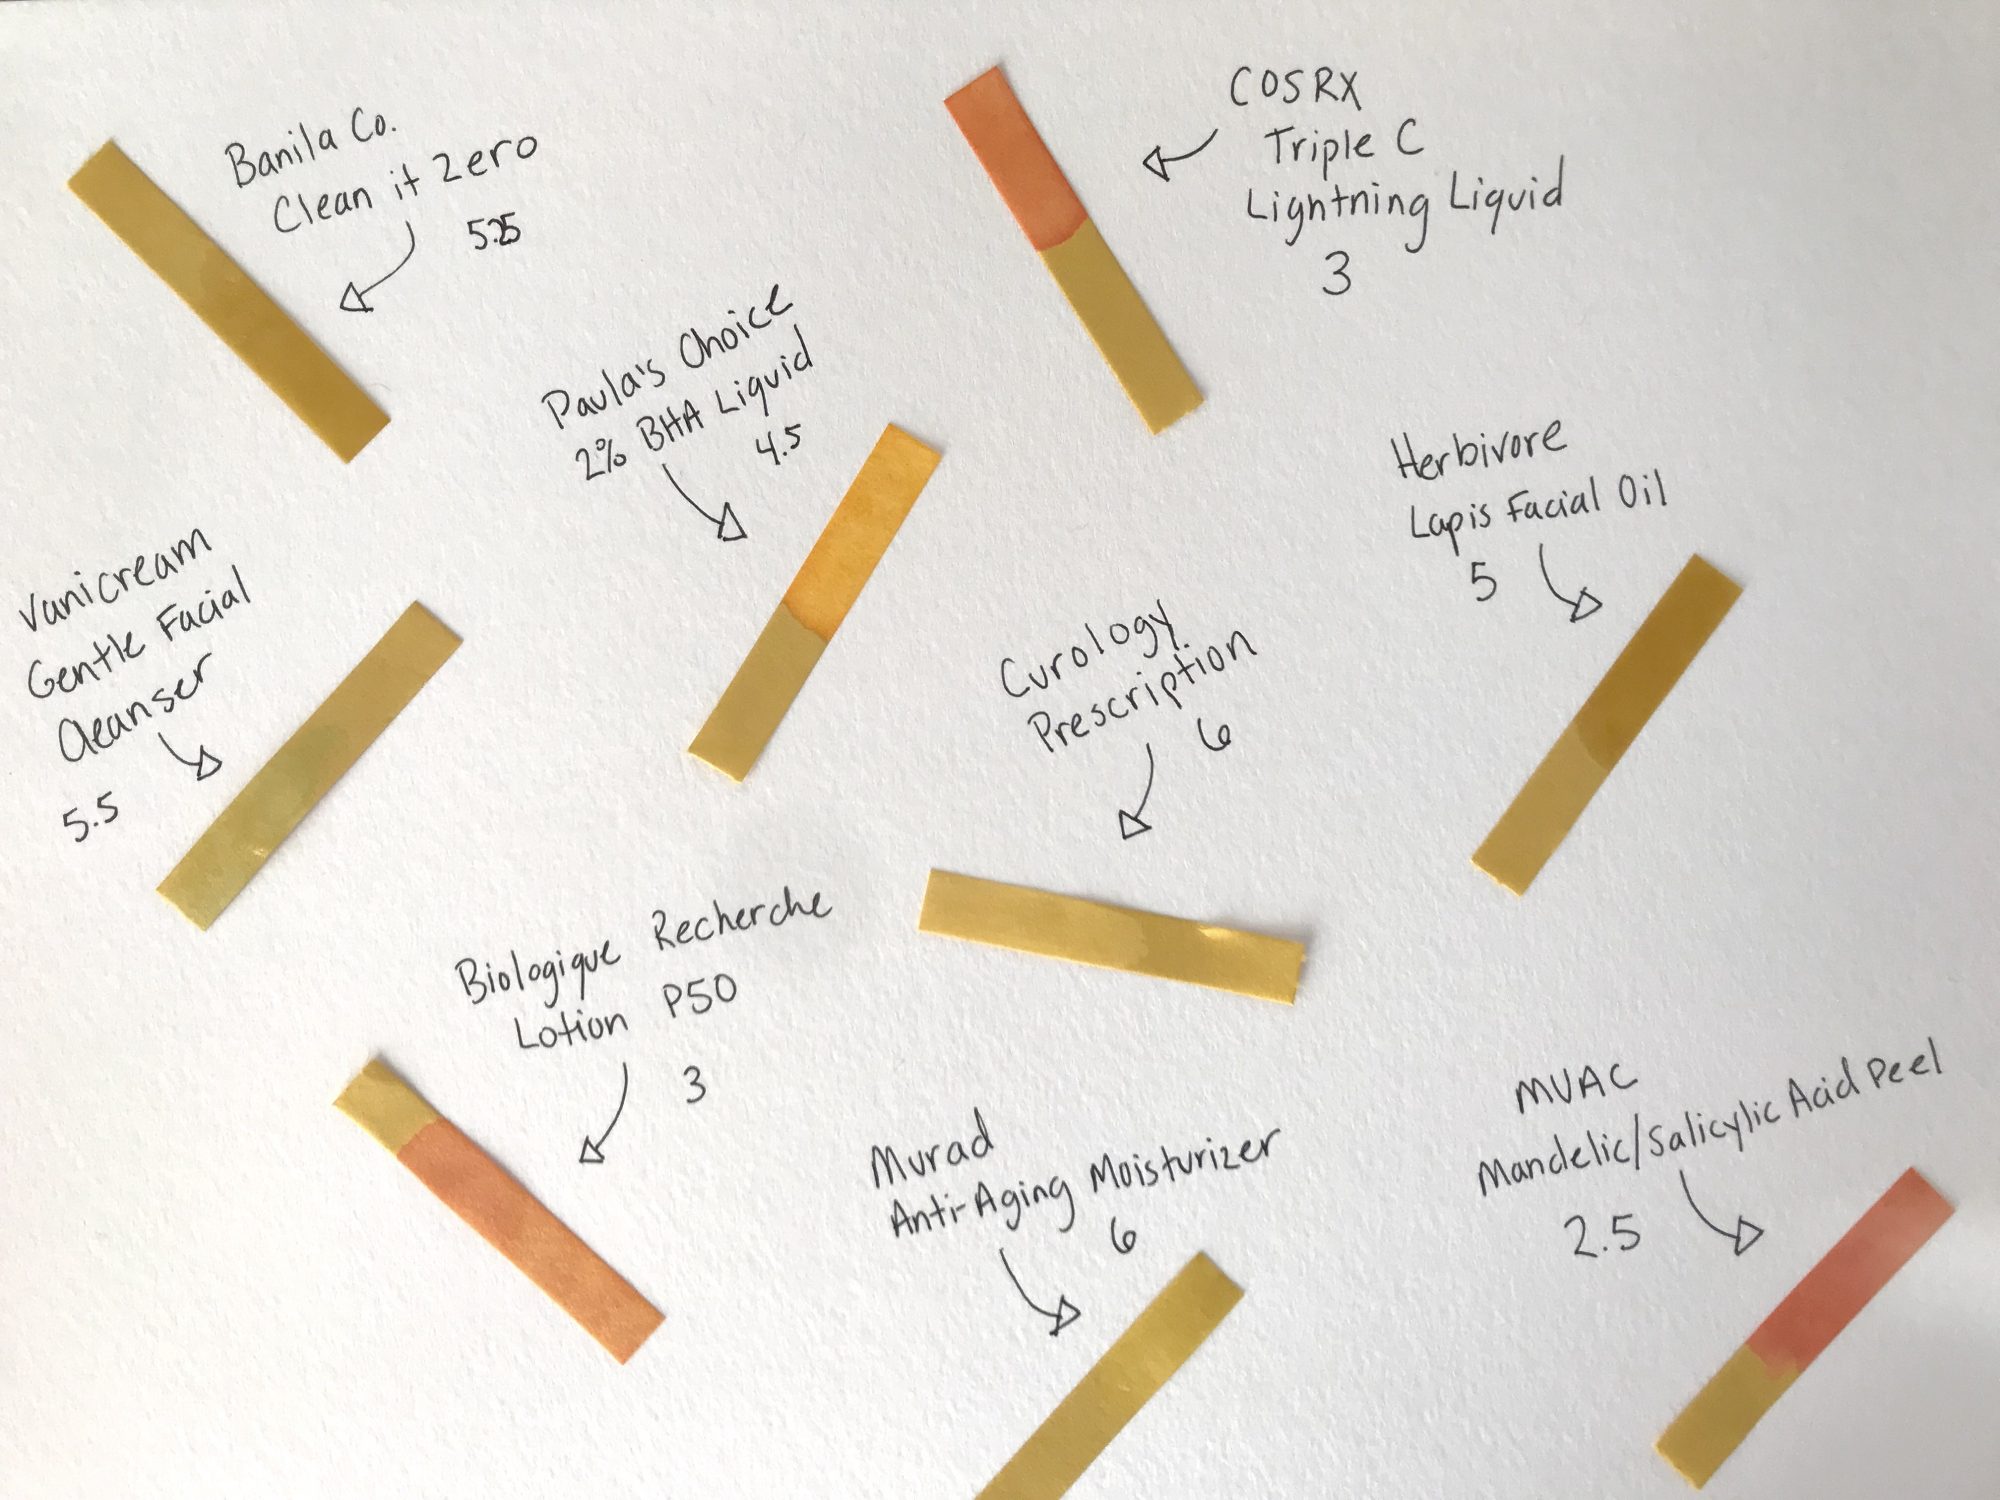 Banila Co.
Clean it Zero
5.25
COSRX
Triple C
Lightning Liquid
3
Paula's Choice
2% BHA Liquid
4.5
Herbivore
Lapis Facial Oil
5
Vanicream
Gentle Facial
Cleanser
5.5
Curology
Prescription
6
Biologique Recherche
Lotion P50
3
Murad
Anti-Aging Moisturizer
6
MUAC
Mandelic/Salicylic Acid Peel
2.5